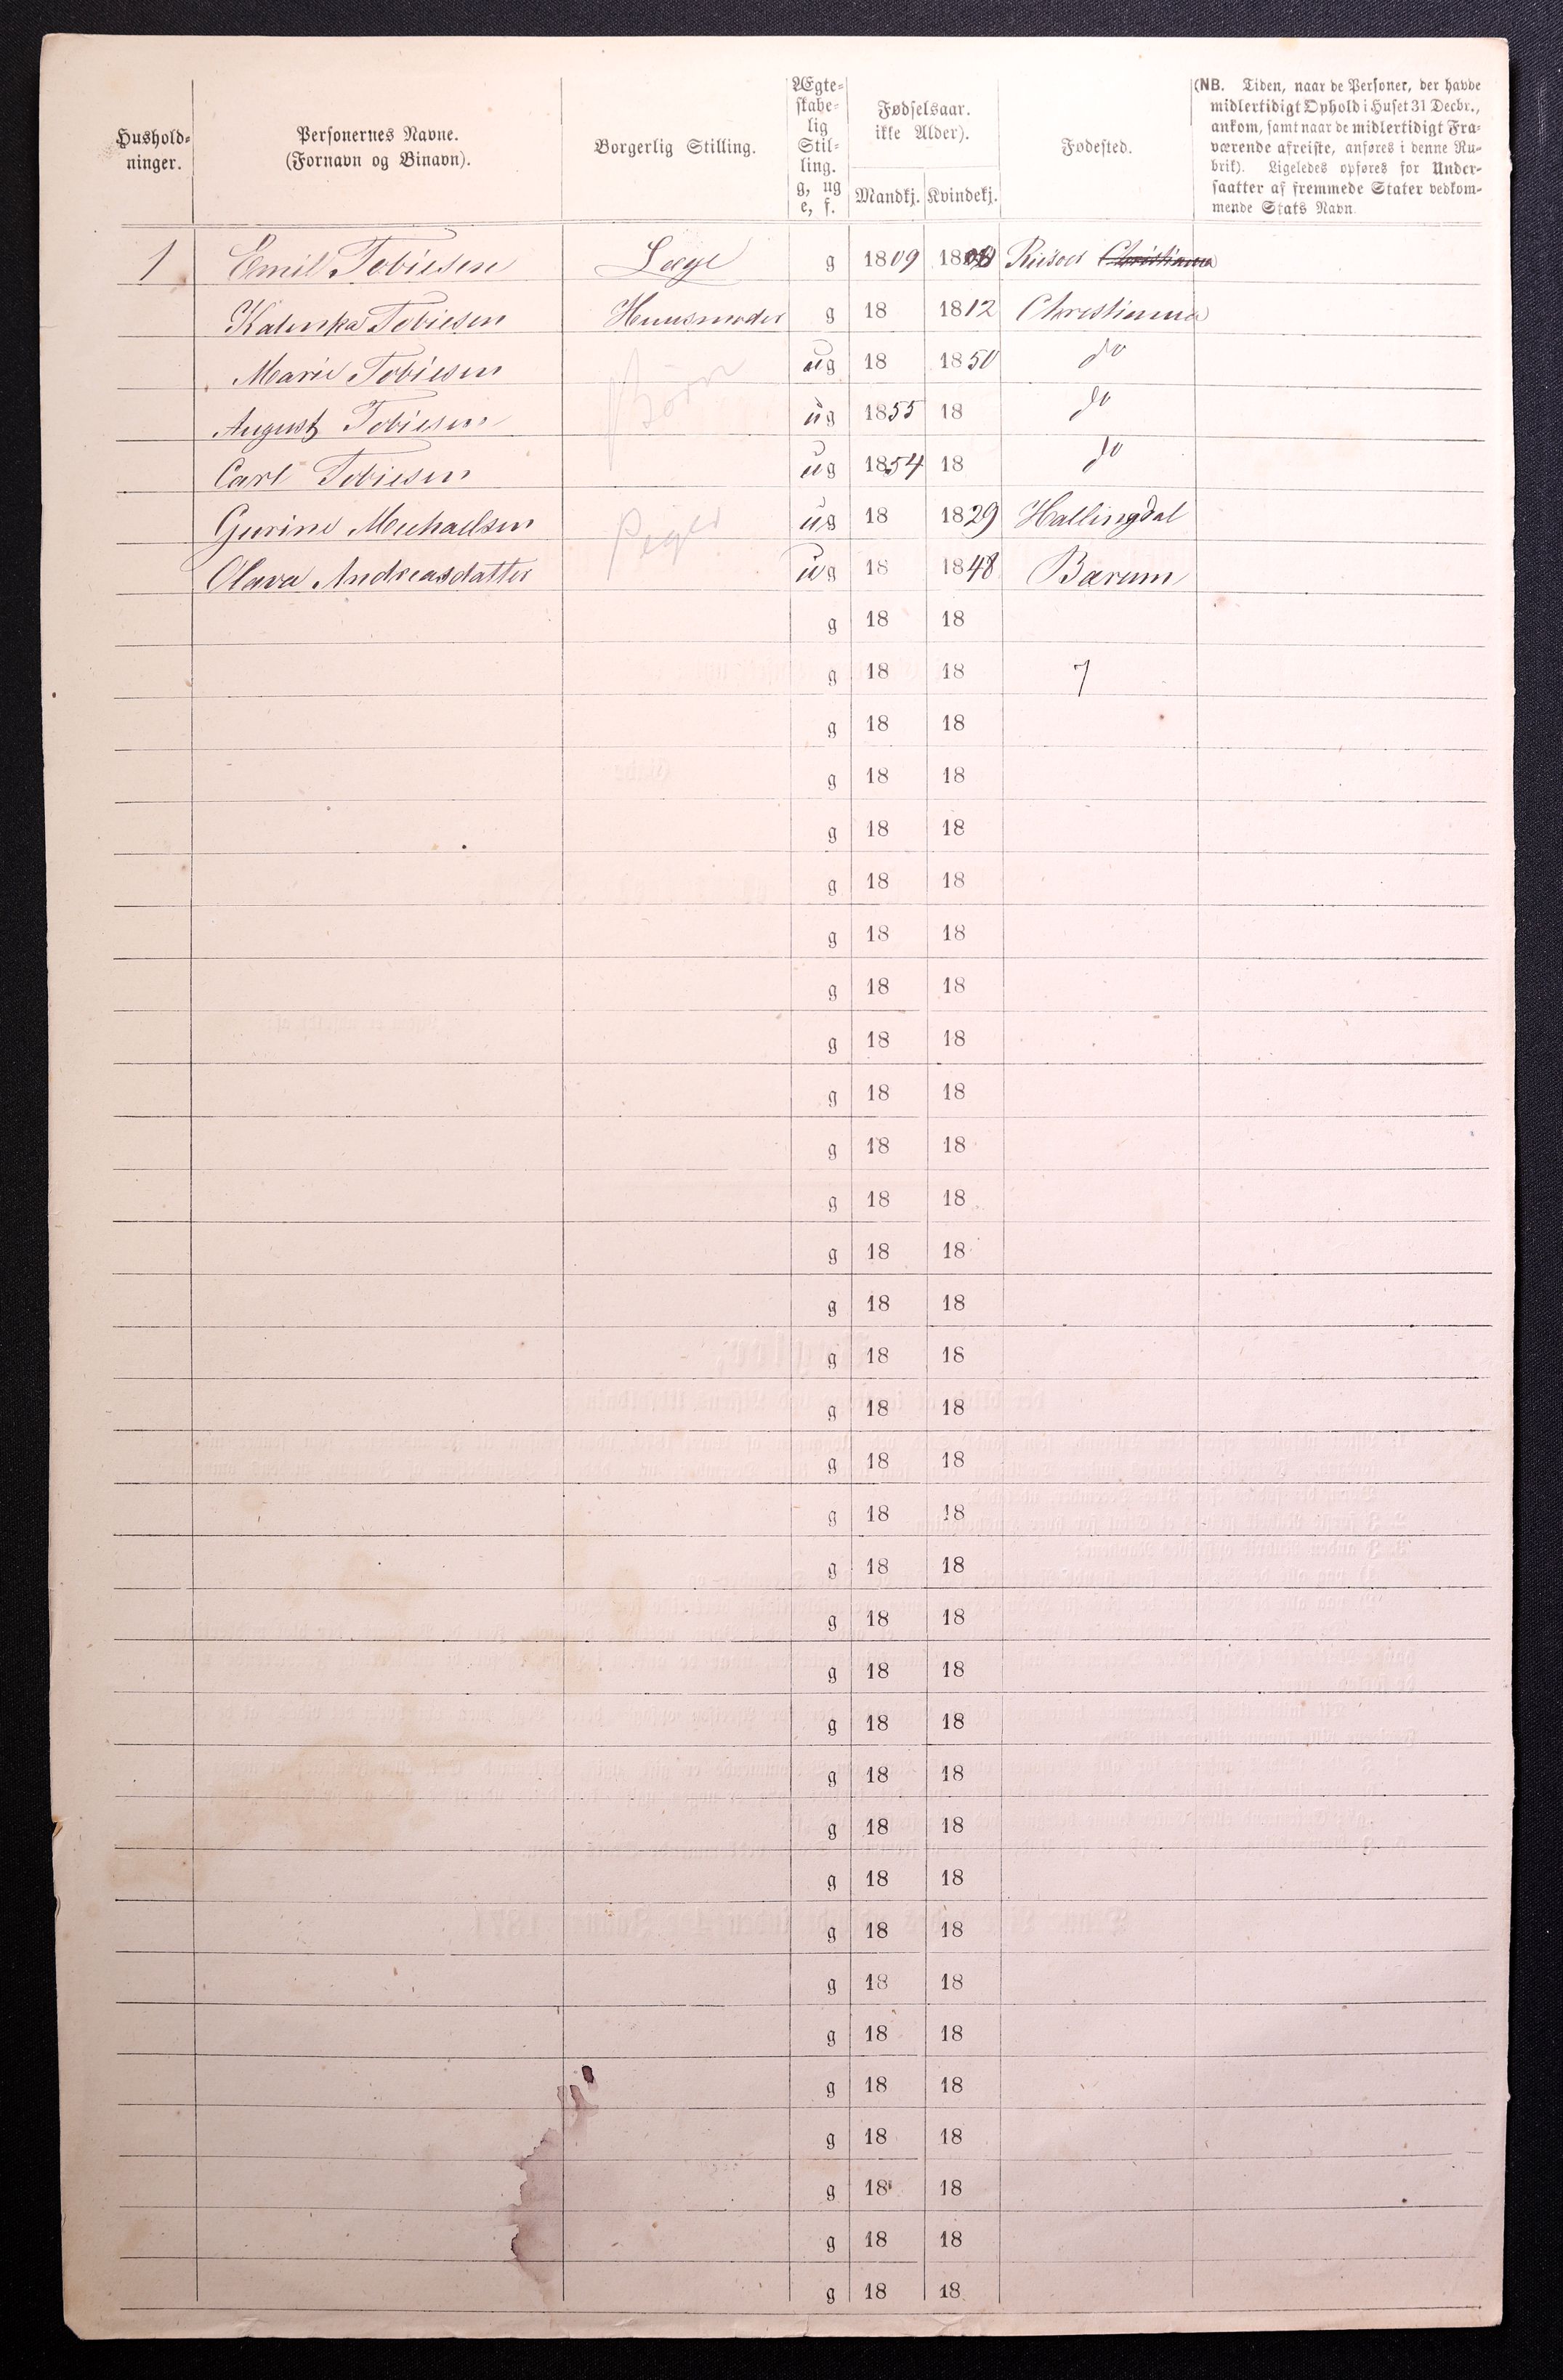 Hushold-
ninger.
Personernes Navne.
(Fornavn og Binavn).
Borgerlig Stilling.
Ægte-
skabe-
lig
Stil-
ling.
g, ug
e, f.
Fødselsaar.
ikke Alder).
Mandkj. Kvindekj.
Fødested.
(NB. Tiden, naar de Personer, der havde
midlertidigt Ophold i Huset 31 Decbr.,
ankom, samt naar de midlertidigt Fra-
værende afreiste, anføres i denne Ru-
brik). Ligeledes opføres for Under-
saatter af fremmede Stater vedkom-
mende Stats Navn.
1 Emil Tobiesen Læge g 1809 18 Riisöer Christiania
Kalinka Tobiesen Huusmoder g 18 1812 Christiania
Marie Tobiesen Börn ug 18 1850 do
August Tobiesen ug 1855 18 do
Carl Tobiesen ug 1854 18 do
Gurine Michaelsen Piger ug 18 1829 Hallingdal
Olava Andreasdatter ug 18 1848 Bærum
g 18 18
g 18 18 7
g 18 18
g 18 18
g 18 18
g 18 18
g 18 18
g 18 18
g 18 18
g 18 18
g 18 18
g 18 18
g 18 18
g 18 18
g 18 18
g 18 18
g 18 18
g 18 18
g 18 18
g 18 18
g 18 18
g 18 18
g 18 18
g 18 18
g 18 18
g 18 18
g 18 18
g 18 18
g 18 18
g 18 18
g 18 18
g 18 18
g 18 18